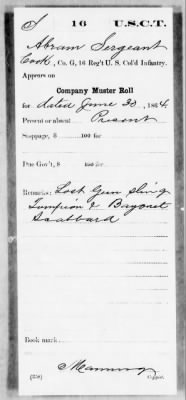 S 16 U.S.C.T.
Abram Sergeant
Cook, Co. G, 16 Reg't U. S. Col'd Infantry.
Appears on
Company Muster Roll
for dated June 30, 1864.
Present or absent Present
Stoppage, $ 100 for
Due Gov't, $ 100 for
Remarks: Lost Gun Sling
Tompion & Bayonet
Scabbard
Book mark:
Manning
(358) Copyist.